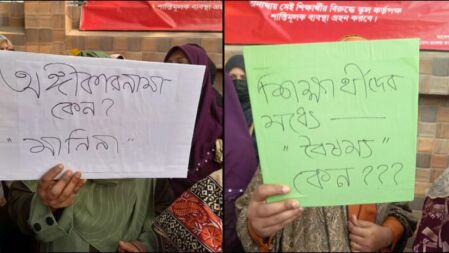 অন্যথায় সেই শিক্ষার্থীর বিরুদ্ধে স্কুল কর্তৃপক্ষ
শাস্তিমূলক ব্যবস্থা গ্রহন করবে।
অঙ্গীকারনামা
কেন?
"মানিনা"
শিক্ষার্থীদের
মধ্যে —
"বৈষম্য"
কেন???